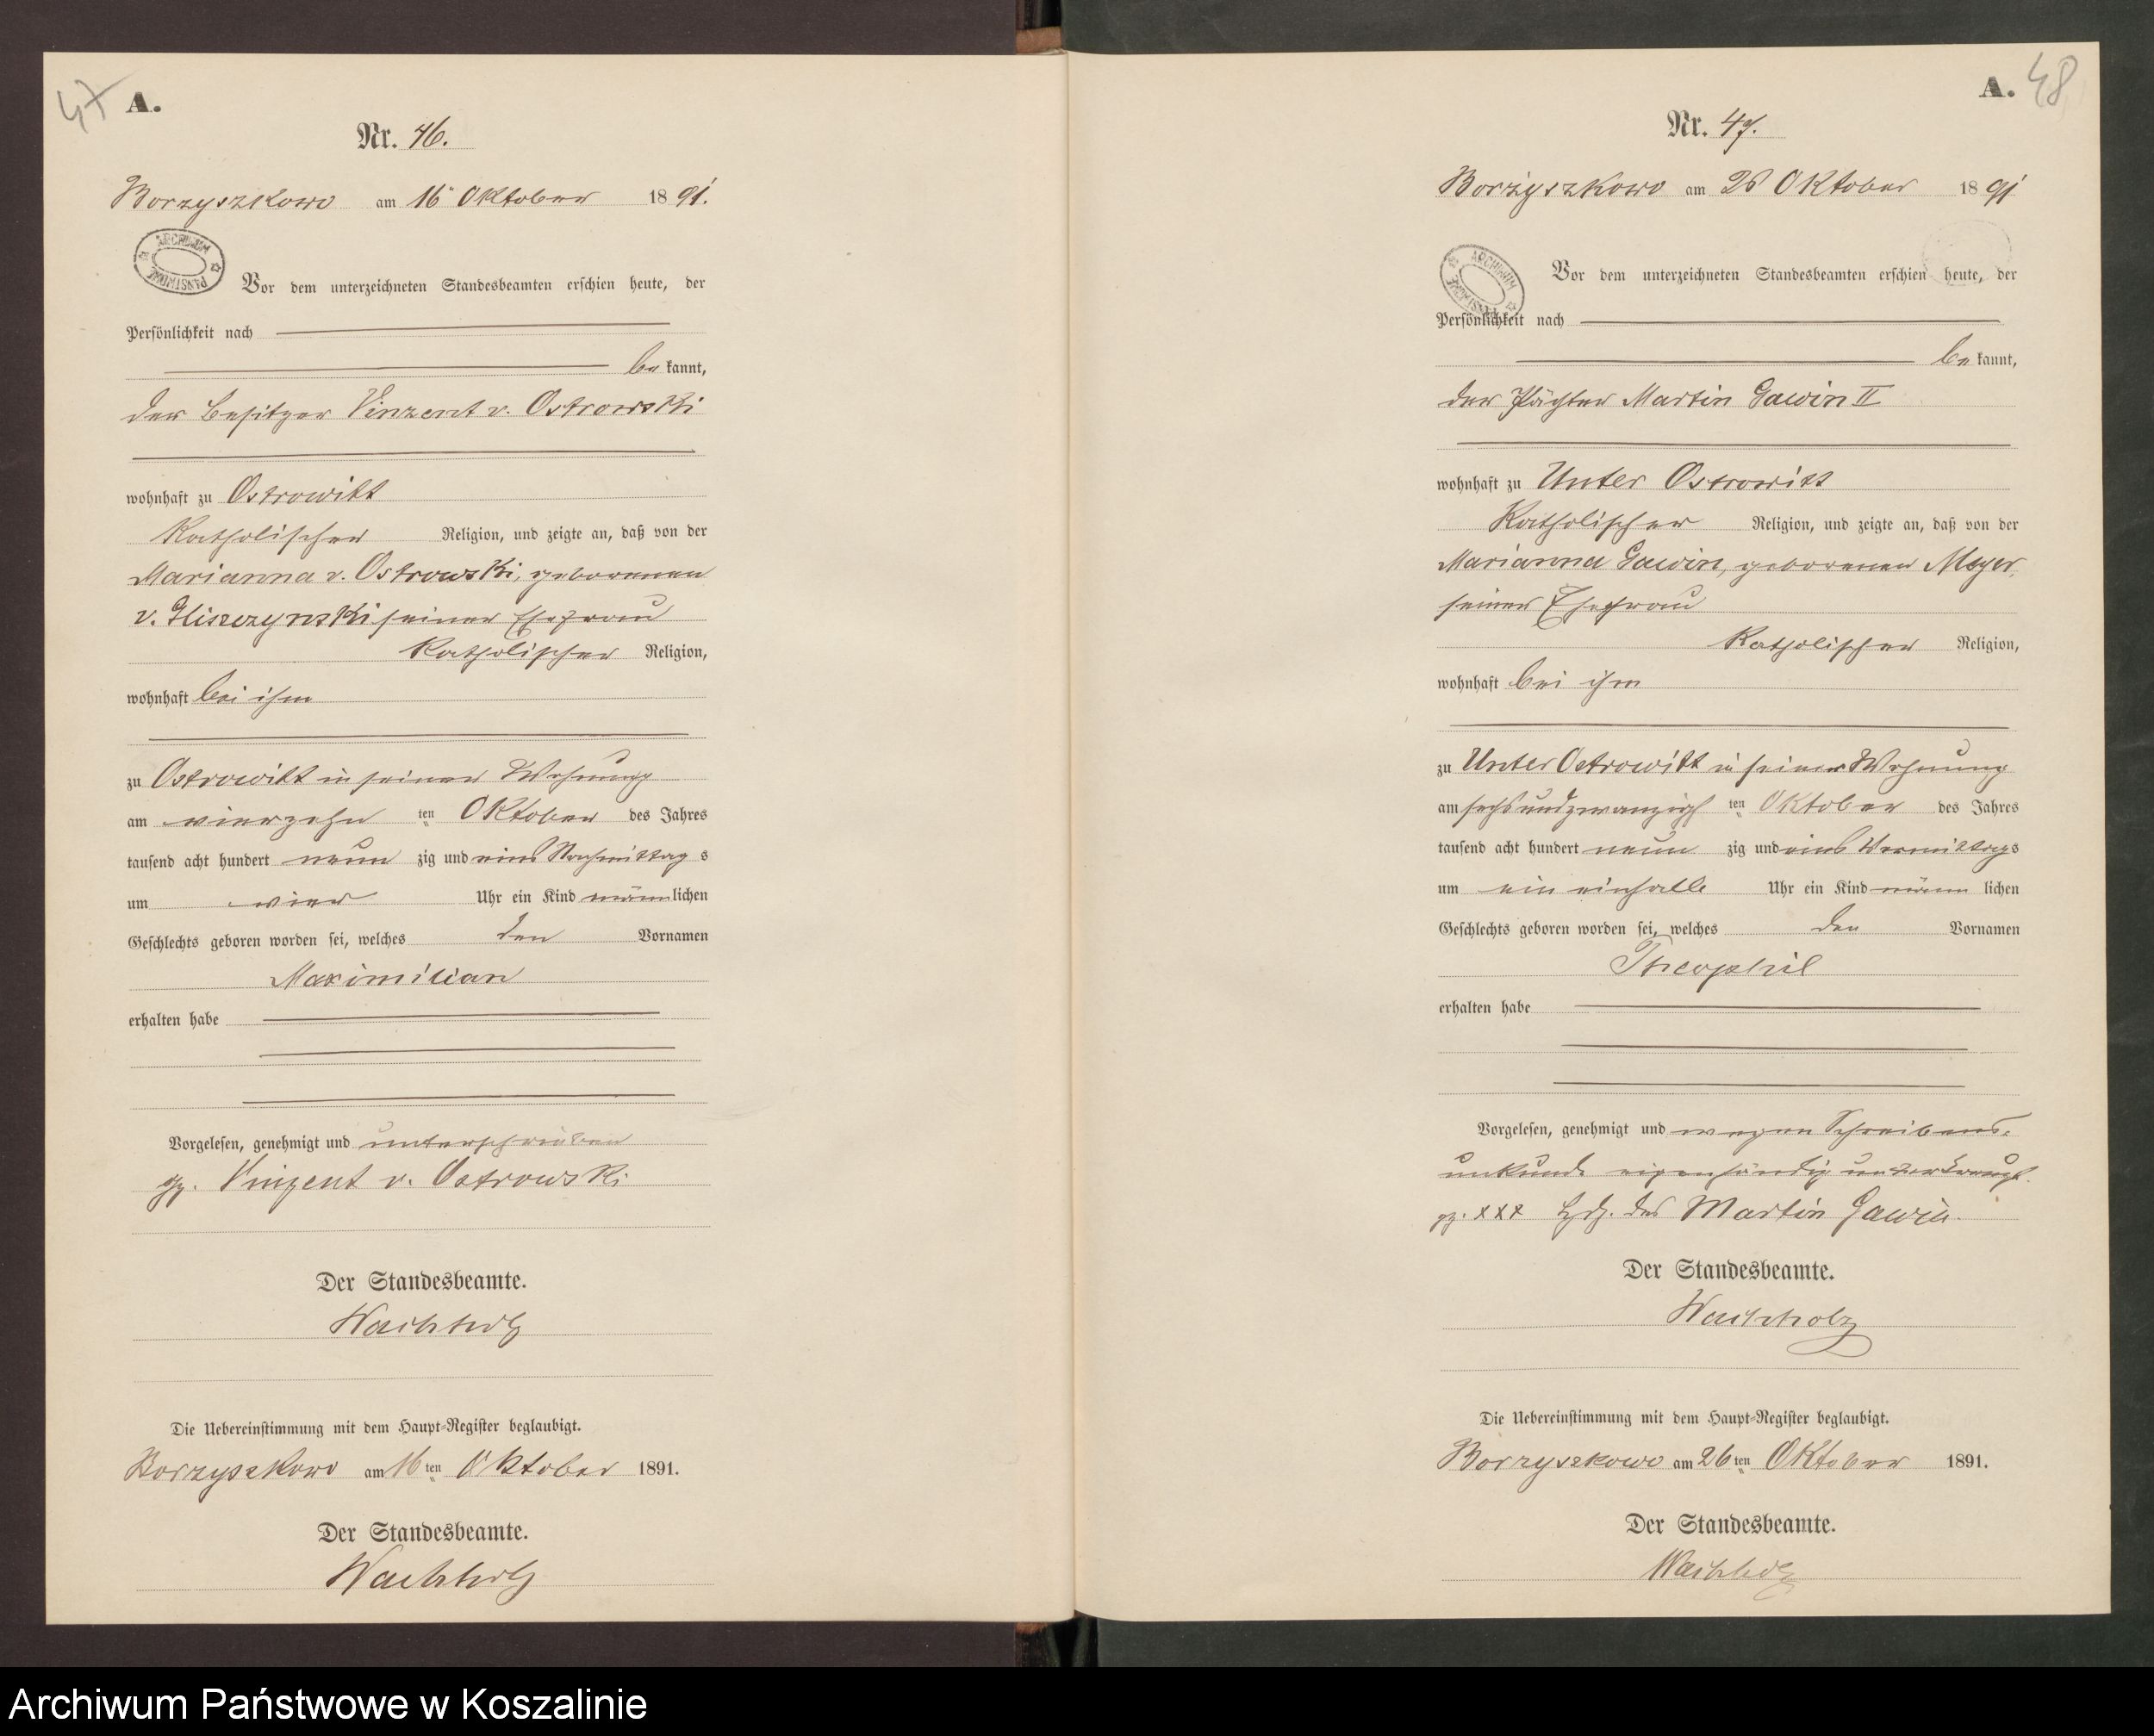 47
A.
Nr. 46.
Borzyszkowo am 16 Oktober 1891.
ARCHIWUM PAŃSTWOWE
Vor dem unterzeichneten Standesbeamten erschien heute, der
Persönlichkeit nach
bekannt,
der Besitzer Vinzent v. Ostrowski
wohnhaft zu Ostrowitt
Katholischer Religion, und zeigte an, daß von der
Marianna v. Ostrowski, geborenen
v. seiner Ehefrau
Katholischer Religion,
wohnhaft bei ihm
zu Ostrowitt in seiner Wohnung
am vierzehn ten Oktober des Jahres
tausend acht hundert neunzig und eins Nachmittags
um vier Uhr ein Kind männlichen
Geschlechts geboren worden sei, welches den Vornamen
Maximilian
erhalten habe
Vorgelesen, genehmigt und unterschrieben
gz. Vinzent v. Ostrowski
Der Standesbeamte.
Wachholz
Die Uebereinstimmung mit dem Haupt-Register beglaubigt.
Borzyszkowo am 16ten Oktober 1891.
Der Standesbeamte.
Wachholz
A.
48
Nr. 47.
Borzyszkowo am 26 Oktober 1891
ARCHIWUM PAŃSTWOWE
Vor dem unterzeichneten Standesbeamten erschien heute, der
Persönlichkeit nach
bekannt,
der Pächter Martin Gawin II
wohnhaft zu Unter Ostrowitt
Katholischer Religion, und zeigte an, daß von der
Marianna Gawin, geborenen Meyer,
seiner Ehefrau
Katholischer Religion,
wohnhaft bei ihm
zu Unter Ostrowitt in seiner Wohnung
am sechsundzwanzigsten Oktober des Jahres
tausend acht hundert neunzig und eins Vormittags
um ein einhalb Uhr ein Kind männlichen
Geschlechts geboren worden sei, welches den Vornamen
Theophil
erhalten habe
Vorgelesen, genehmigt und wegen Schreibens-
unkunde eigenhändig unterkreuzt.
gz. xxx Hdz. des Martin Gawin.
Der Standesbeamte.
Wachholz
Die Uebereinstimmung mit dem Haupt-Register beglaubigt.
Borzyszkowo am 26ten Oktober 1891.
Der Standesbeamte.
Wachholz
Archiwum Państwowe w Koszalinie